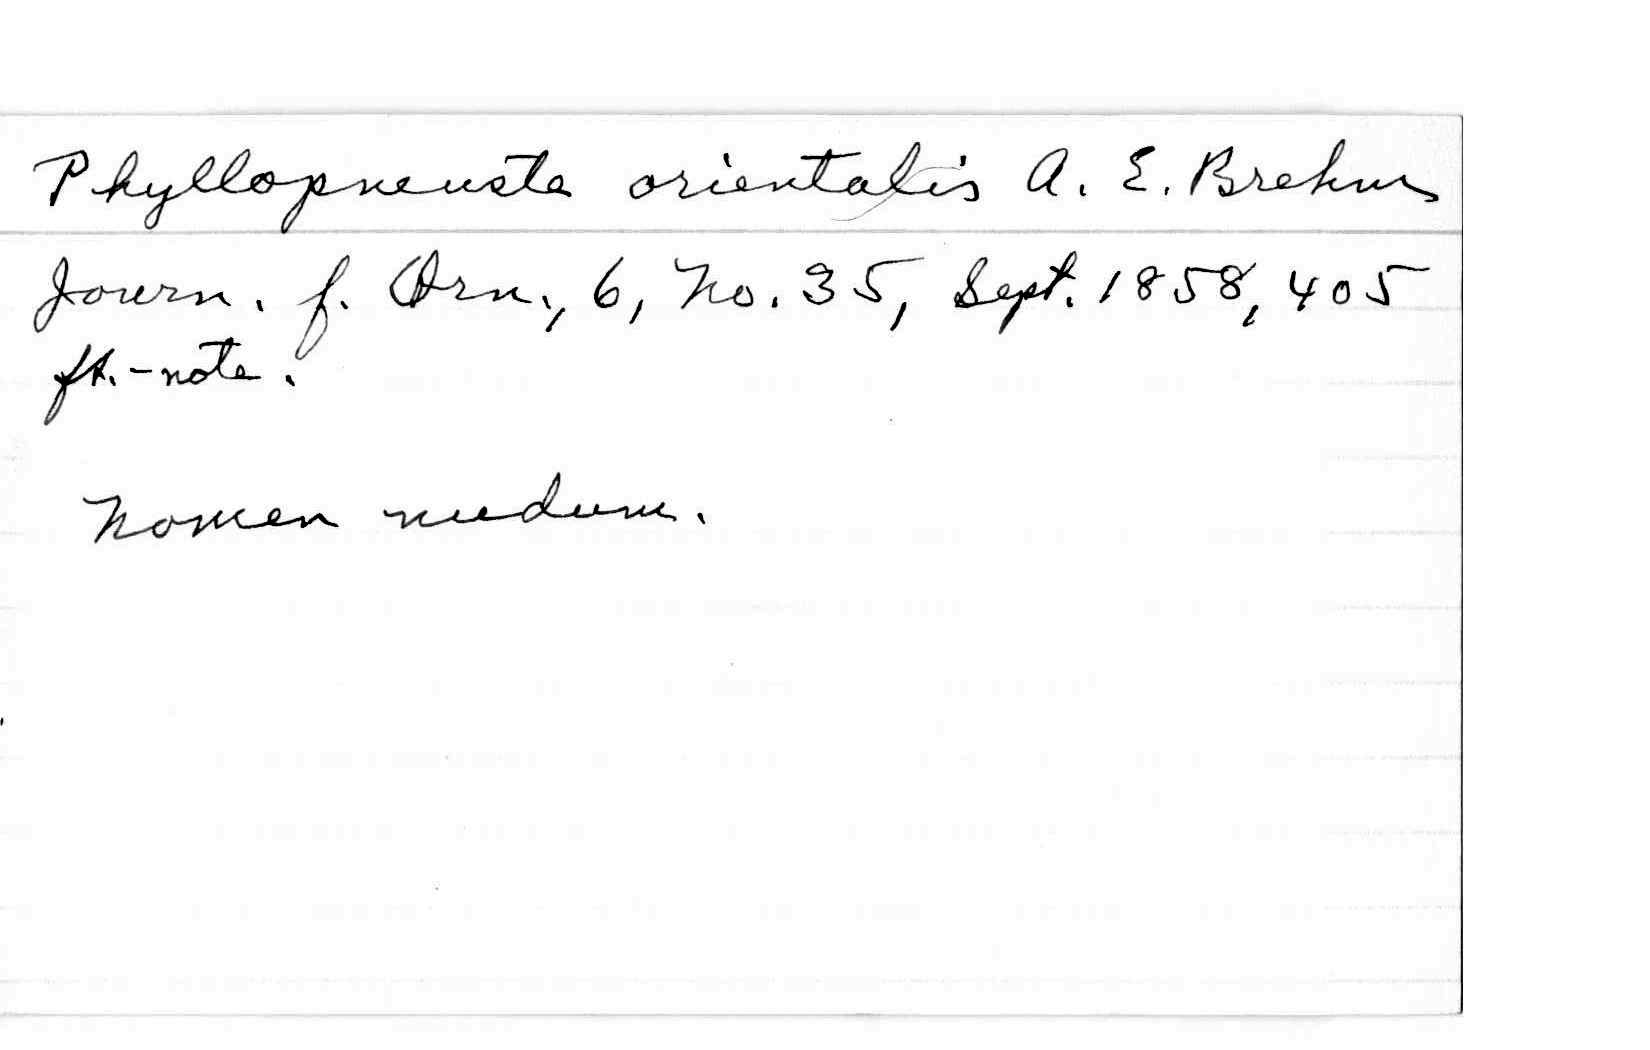 Phyllopneuste orientalis A. E. Brehm
Journ. f. Orn., 6, No. 35, Sept. 1858, 405
ft.-note.
Nomen nudum.